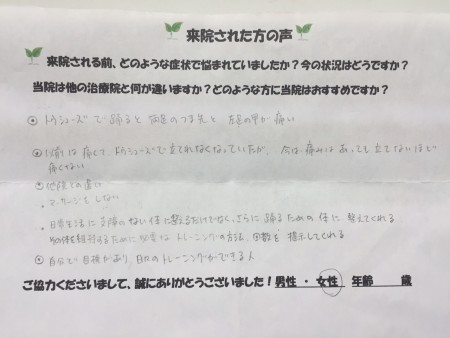 来院された方の声
来院される前、どのような症状で悩まれていましたか？今の状況はどうですか？
当院は他の治療院と何が違いますか？どのような方に当院はおすすめですか？
トウシューズで踊ると両足のつま先と左足の甲が痛い
以前は痛くてトウシューズで立てれなくなっていたが、今は痛みはあっても立てないほど
痛くない
他院との違い
・マッサージをしない
・日常生活に支障のない体に整えるだけでなく、さらに踊るための体に整えてくれる
ためにトレーニングの方法、回数を指示してくれる
自分で目標があり、日々のトレーニングができる人
ご協力くださいまして、誠にありがとうございました！男性・女性 年齢 歳